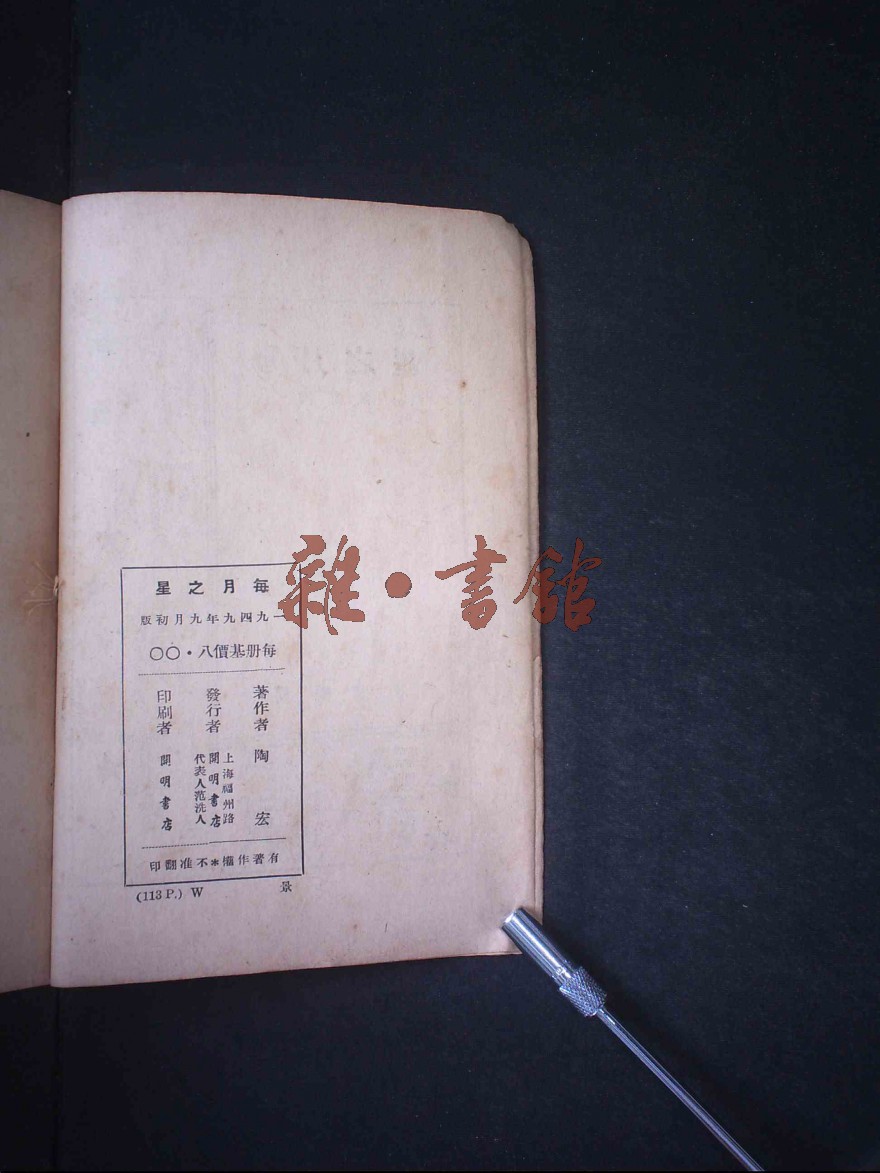 每月之星
一九四九年九月初版
每册基價八·〇〇
著作者 陶宏
發行者 上海福州路 開明書店 代表人范洗人
印刷者 開明書店
有著作權*不准翻印
(113 P.) W 景
雜·書館